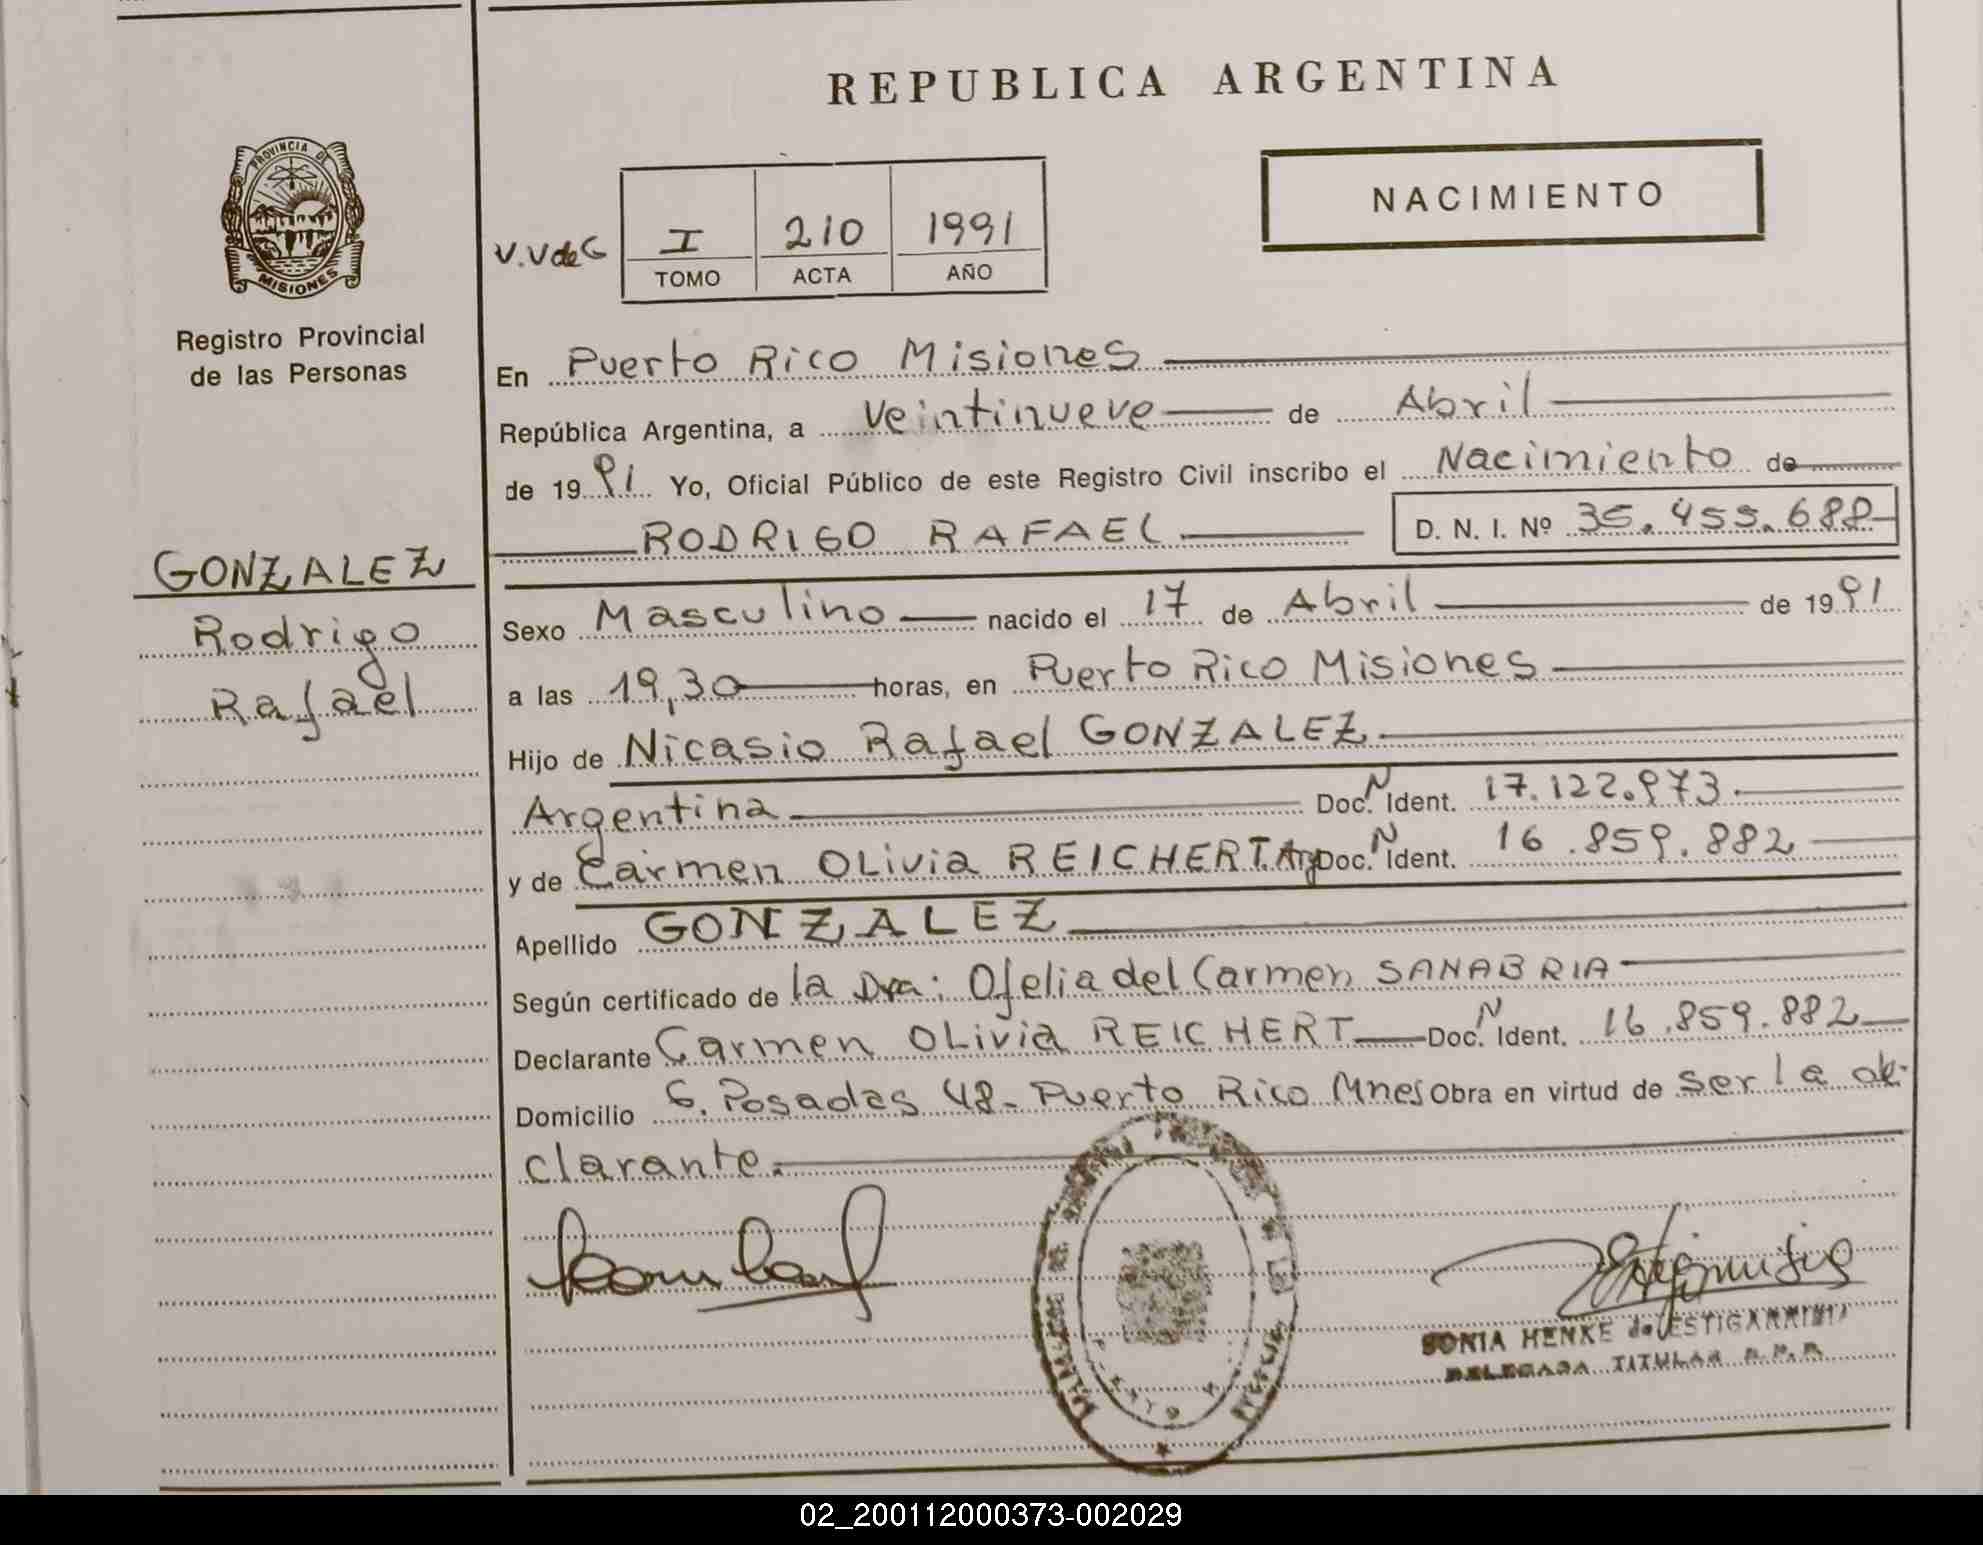 REPUBLICA ARGENTINA
PROVINCIA DE
MISIONES
Registro Provincial
de las Personas
V.V de G
I 210 1991
TOMO ACTA AÑO
NACIMIENTO
En Puerto Rico Misiones
República Argentina, a Veintinueve de Abril
de 1991 Yo, Oficial Público de este Registro Civil inscribo el Nacimiento de
RODRIGO RAFAEL D. N. I. Nº 35.455.688
GONZALEZ
Rodrigo
Rafael
Sexo Masculino nacido el 17 de Abril de 1991
a las 19,30 horas, en Puerto Rico Misiones
Hijo de Nicasio Rafael GONZALEZ
Argentina Doc. N Ident. 17.122.973
y de Carmen OLivia REICHERT. Arg Doc. N Ident. 16.859.882
Apellido GONZALEZ
Según certificado de la Dra: Ofelia del Carmen SANABRIA
Declarante Carmen OLivia REICHERT Doc. N Ident. 16.859.882
Domicilio G. Posadas 48- Puerto Rico Mnes Obra en virtud de ser la de-
clarante.
SONIA HENKE de ESTIGARRIBIA
DELEGADA TITULAR R.P.P.
02_200112000373-002029